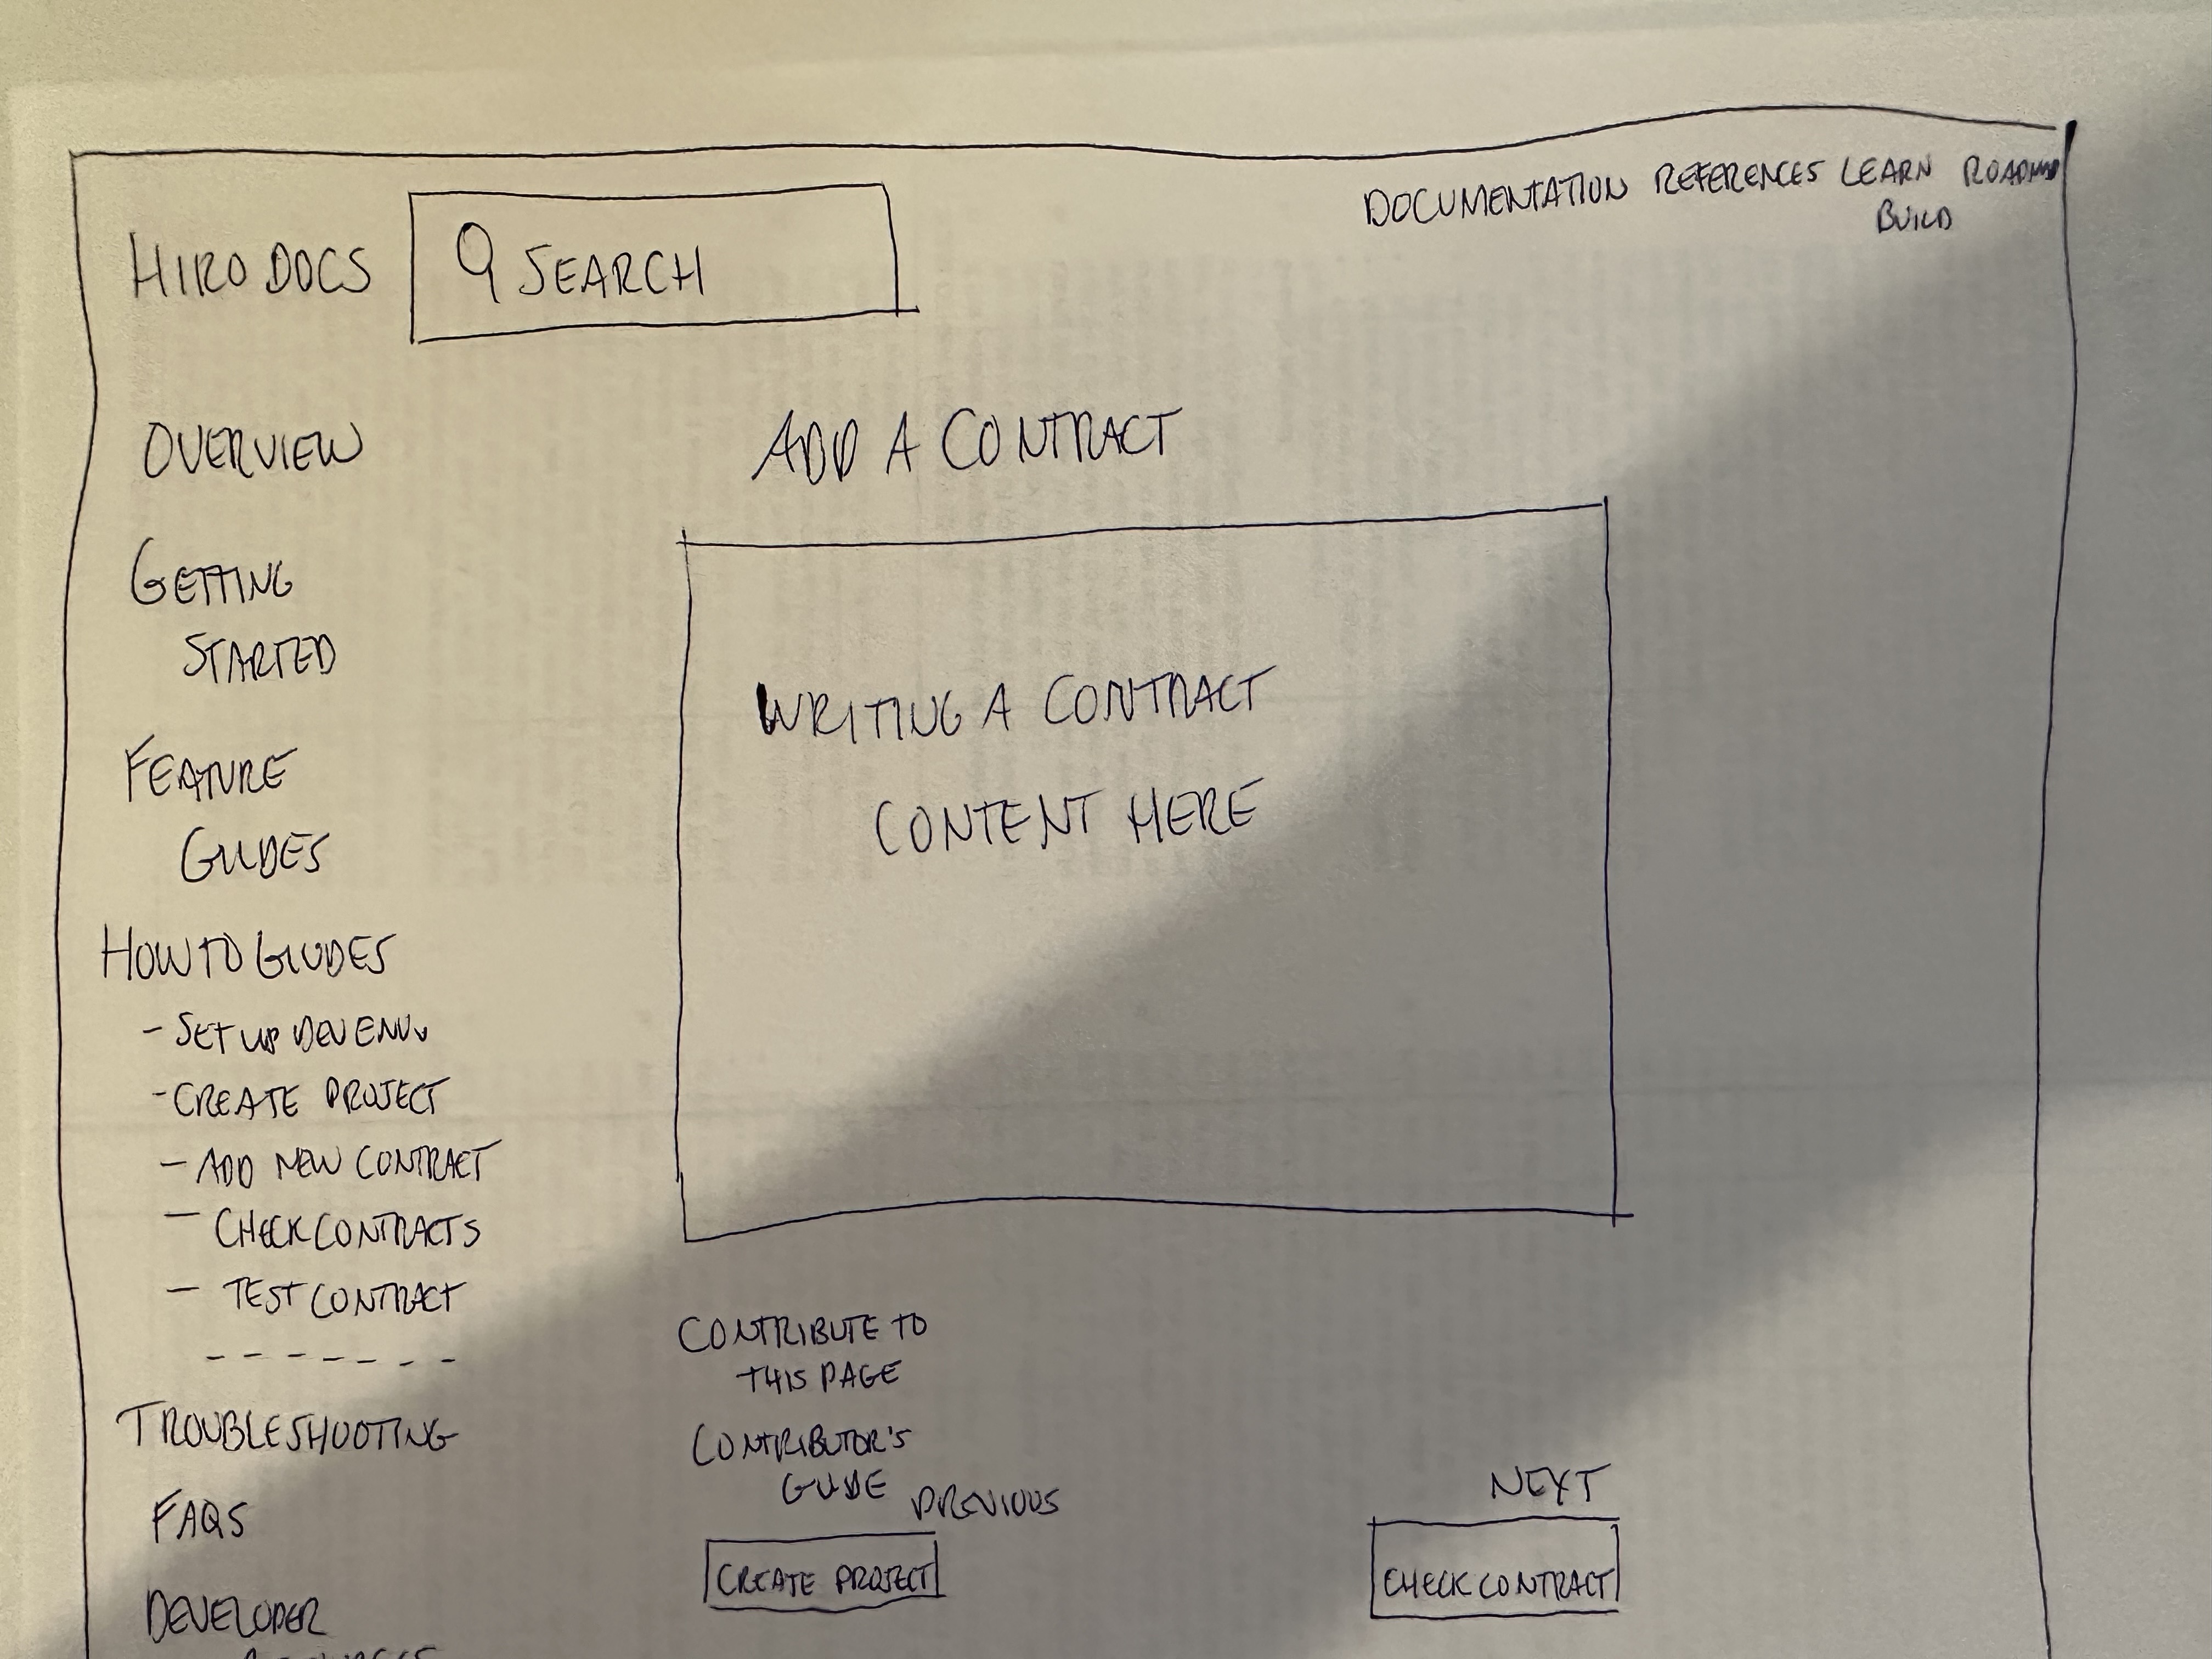 HIRO DOCS
SEARCH
DOCUMENTATION REFERENCES LEARN ROADMAP
BUILD
OVERVIEW
GETTING
STARTED
FEATURE
GUIDES
HOW TO GUIDES
- SET UP DEV ENV
- CREATE PROJECT
- ADD NEW CONTRACT
- CHECK CONTRACTS
- TEST CONTRACT
- - - - - - -
TROUBLESHOOTING
FAQS
DEVELOPER
RESOURCES
ADD A CONTRACT
WRITING A CONTRACT
CONTENT HERE
CONTRIBUTE TO
THIS PAGE
CONTRIBUTOR'S
GUIDE
PREVIOUS
CREATE PROJECT
NEXT
CHECK CONTRACT